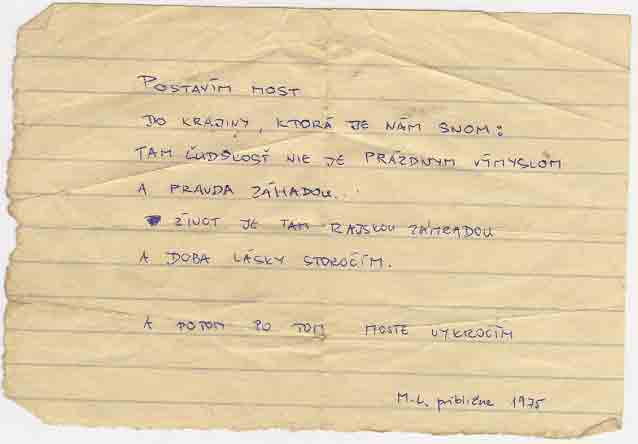 POSTAVÍM MOST
DO KRAJINY, KTORÁ JE NÁM SNOM:
TAM ĽUDSKOSŤ NIE JE PRÁZDNYM VÝMYSLOM
A PRAVDA ZÁHADOU.
ŽIVOT JE TAM RAJSKOU ZÁHRADOU
A DOBA LÁSKY STOROČÍM.
A POTOM PO TOM MOSTE VYKROČÍM
M.L. približne 1975